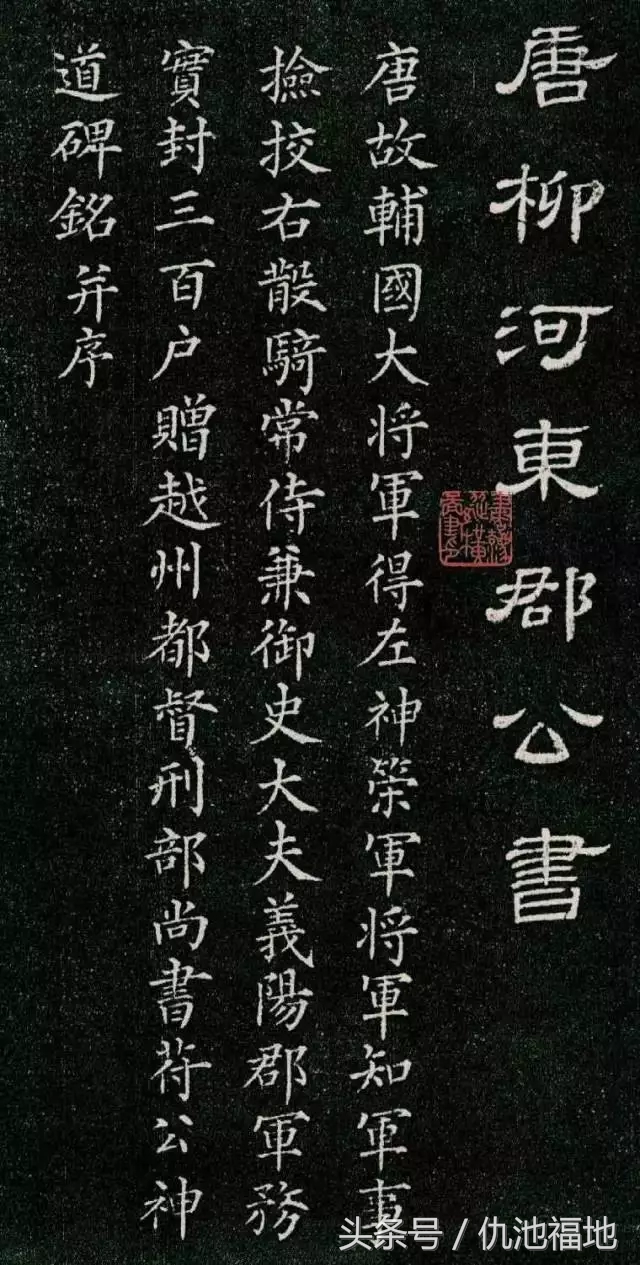 唐柳河東郡公書
唐故輔國大将軍得左神策軍将軍知軍事
撿挍右散騎常侍兼御史大夫義陽郡軍務
實封三百户贈越州都督刑部尚書苻公神
道碑銘并序
头条号 / 仇池福地